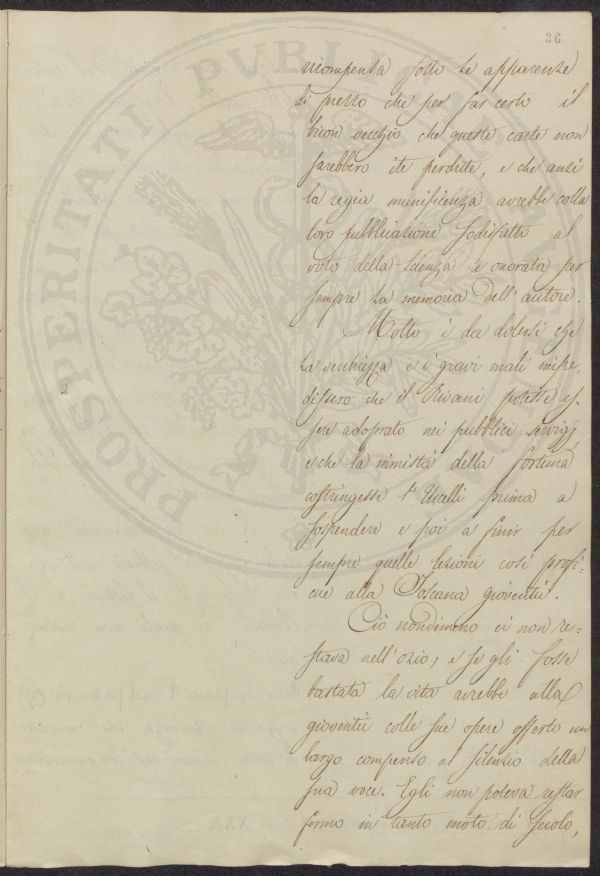 36
PROSPERITATI PVBLICAE
ricompensa sotto le apparenze
di prezzo che per far certo il
buon vecchio che queste carte non
sarebbero ite perdute, e che anzi
la regia munificenza avrebbe colla
loro pubblicazione sodisfatto al
voto della Scienza e onorata per
sempre la memoria dell'autore.
Molto è da dolersi che
la vecchiezza e i gravi mali impe-
dissero che il Vivani potesse es-
sere adoprato nei pubblici servigj,
e che la nimistà della fortuna
costringesse l'Uccelli prima a
sospendere e poi a finir per
sempre quelle lezioni così profi-
cue alla Toscana gioventù.
Ciò nondimeno ei non re-
stava nell'ozio, e se gli fosse
bastata la vita avrebbe alla
gioventù colle sue opere offerto un
largo compenso al silenzio della
sua voce. Egli non poteva restar
fermo in tanto moto di secolo,